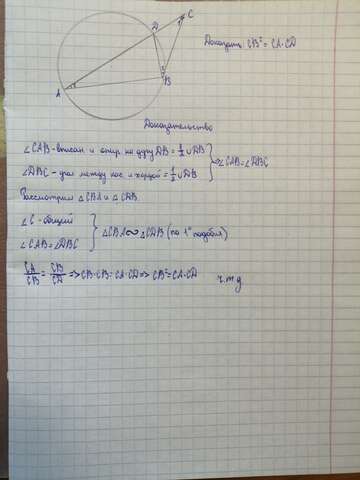 C
D
Доказать: CB² = CA·CD
B
A
Доказательство
∠CAB - вписан и опир. на дугу DB = ½ ∪DB
∠DBC - угол между кас. и хордой = ½ ∪DB
⇒ ∠CAB = ∠DBC
Рассмотрим △CBA и △CDB
∠C - общий
∠CAB = ∠DBC
△CBA ∾ △CDB (по 1° подобия)
CA/CB = CB/CD => CB·CB = CA·CD => CB² = CA·CD
ч.т.д